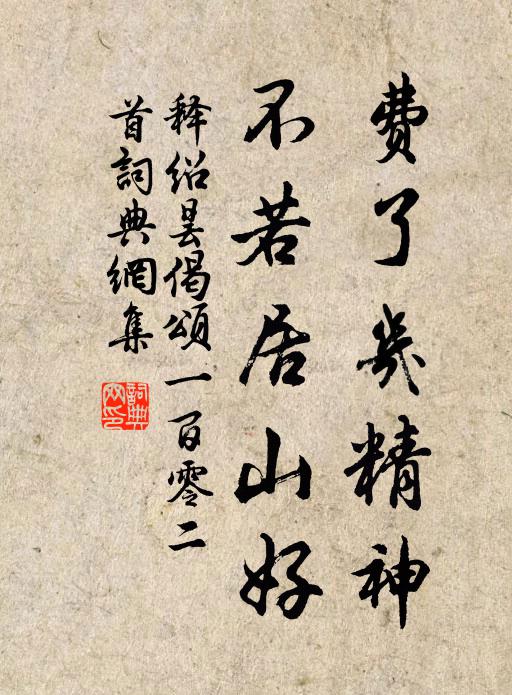 費了幾精神
不若居山好
释绍昙偈頌一百零二
首詞典網集
詞典网印